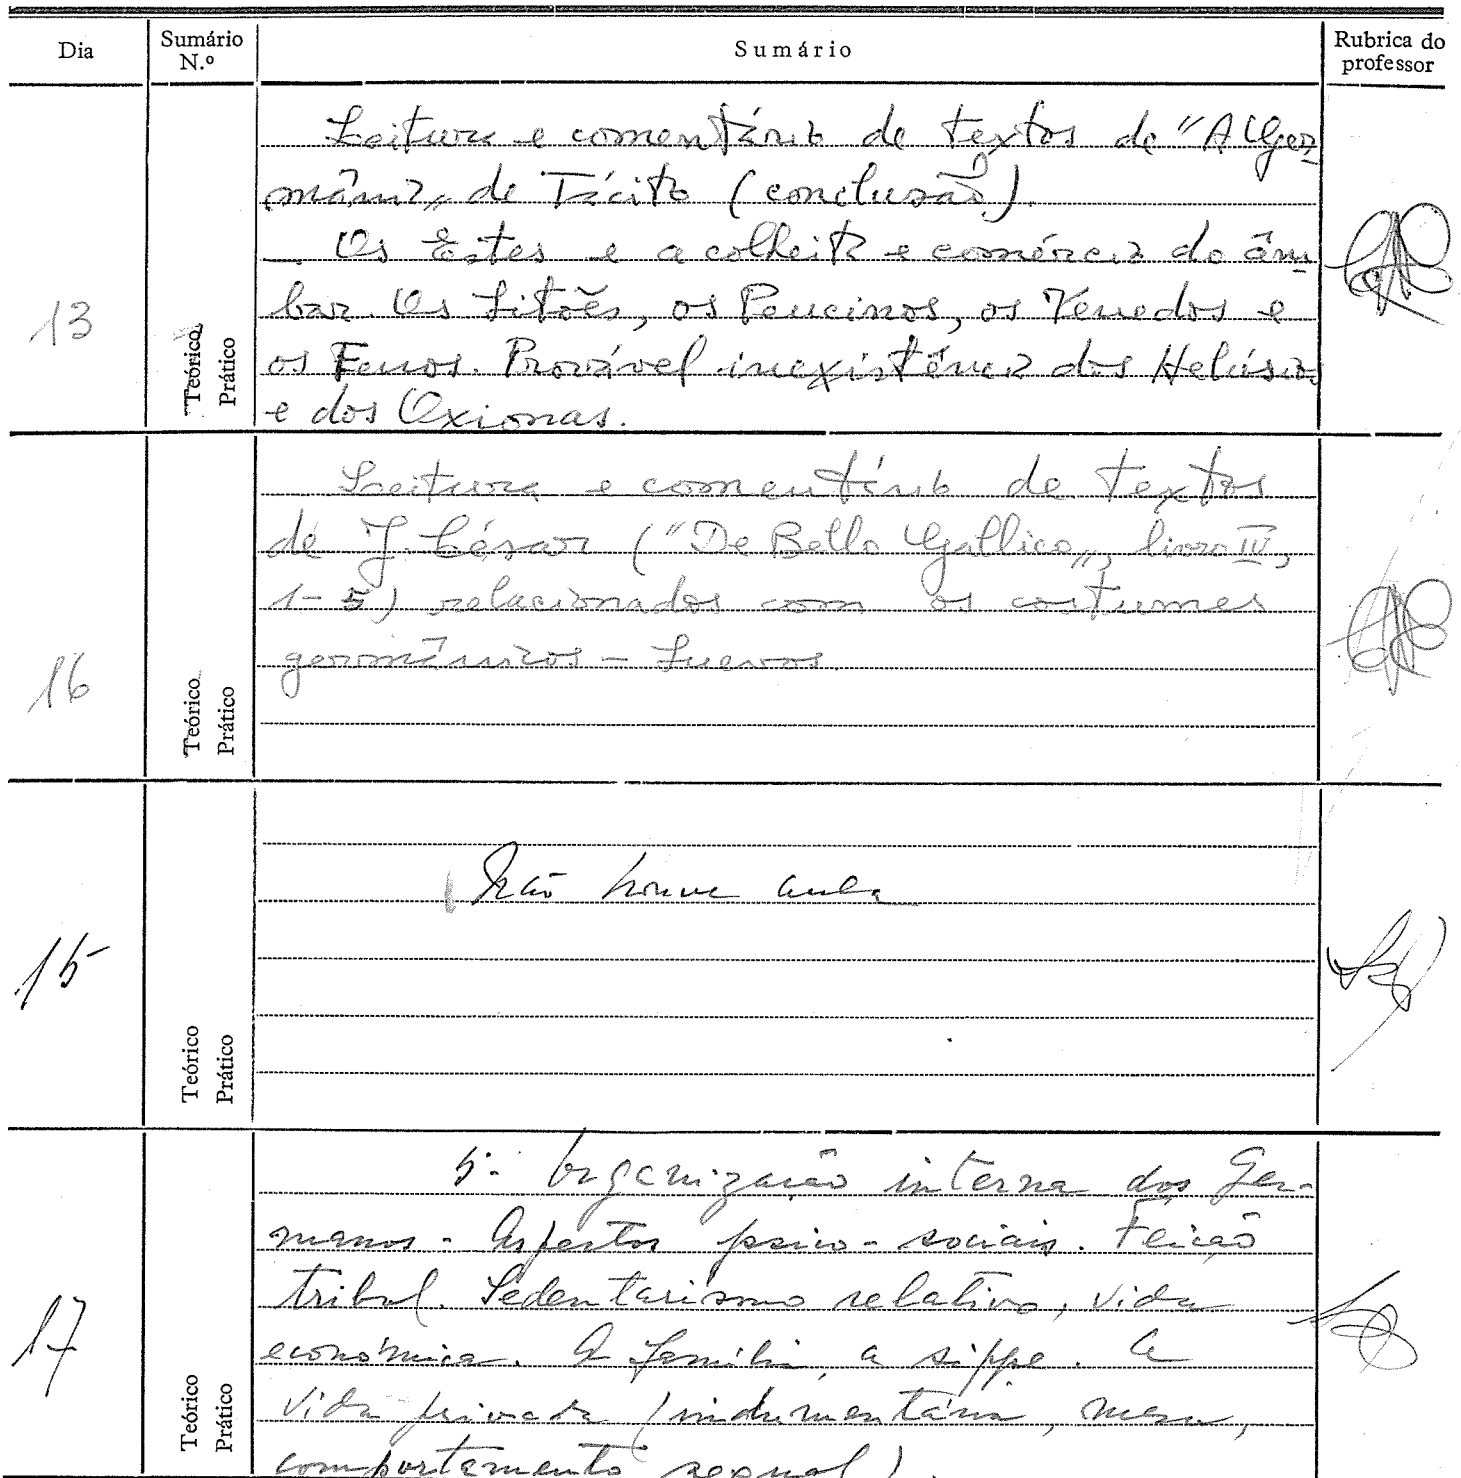 Dia
Sumário
N.º
Sumário
Rubrica do
professor
13
Teórico
Prático
Leitura e comentário de textos de "A Ger-
mânia" de Tácito (conclusão).
— Os Estes e a colheita e comércio do âm-
bar. Os Sitões, os Peucinos, os Venedos e
os Fenos. Provável inexistência dos Helúsios
e dos Oxionas.
16
Teórico
Prático
Leitura e comentário de textos
de J. César ("De Bello Gallico", livro IV,
1-5) relacionados com os costumes
germânicos - Suevos
15
Teórico
Prático
Não houve aula
17
Teórico
Prático
5 - Organização interna dos Ger-
manos - Aspectos psico-sociais. Feição
tribal. Sedentarismo relativo, vida
económica. A família, a sippe. A
vida privada (indumentária, mesa,
comportamento sexual).